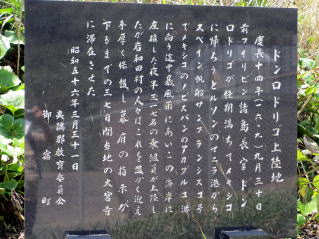 ドンロドリゴ上陸地
慶長十四年(一六〇九)九月三十日
前フィリピン諸島長官 ドン
ロドリゴが任期満ちてメキシコ
に帰ろうとルソンのマニラ港から
スペイン帆船サンフランシスコ号
でメキシコのノビスパンのアカプルコ港
に向う途中暴風雨にあいこの海岸に
座礁した夜半三一七名の乗組員が上陸し
たが岩和田村の人々はこれを温かく迎え
手厚く保護し幕府の指示が
下るまでの三七日間当地の大宮寺
に滞在させた
昭和五十六年三月三十一日
夷隅郡教育委員会
御宿町